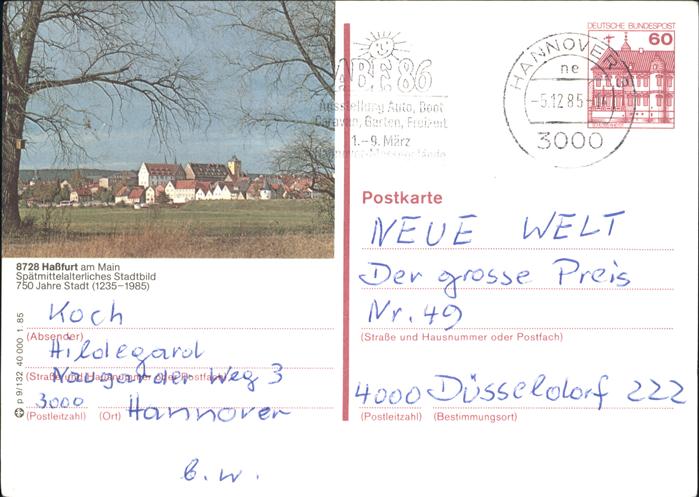 8728 Haßfurt am Main
Spätmittelalterliches Stadtbild
750 Jahre Stadt (1235–1985)
Koch
(Absender)
Hildegard
(Straße und Hausnummer oder Postfach)
Naugarder Weg 3
3000 Hannover
(Postleitzahl) (Ort)
b.w.
p 9/132 40 000 1.85
ABF 86
Ausstellung Auto, Boot
Caravan, Garten, Freizeit
1.–9. März
HANNOVER
ne
-5.12.85
3000
DEUTSCHE BUNDESPOST
60
Postkarte
NEUE WELT
Der grosse Preis
Nr. 49
(Straße und Hausnummer oder Postfach)
4000 Düsseldorf 222
(Postleitzahl) (Bestimmungsort)